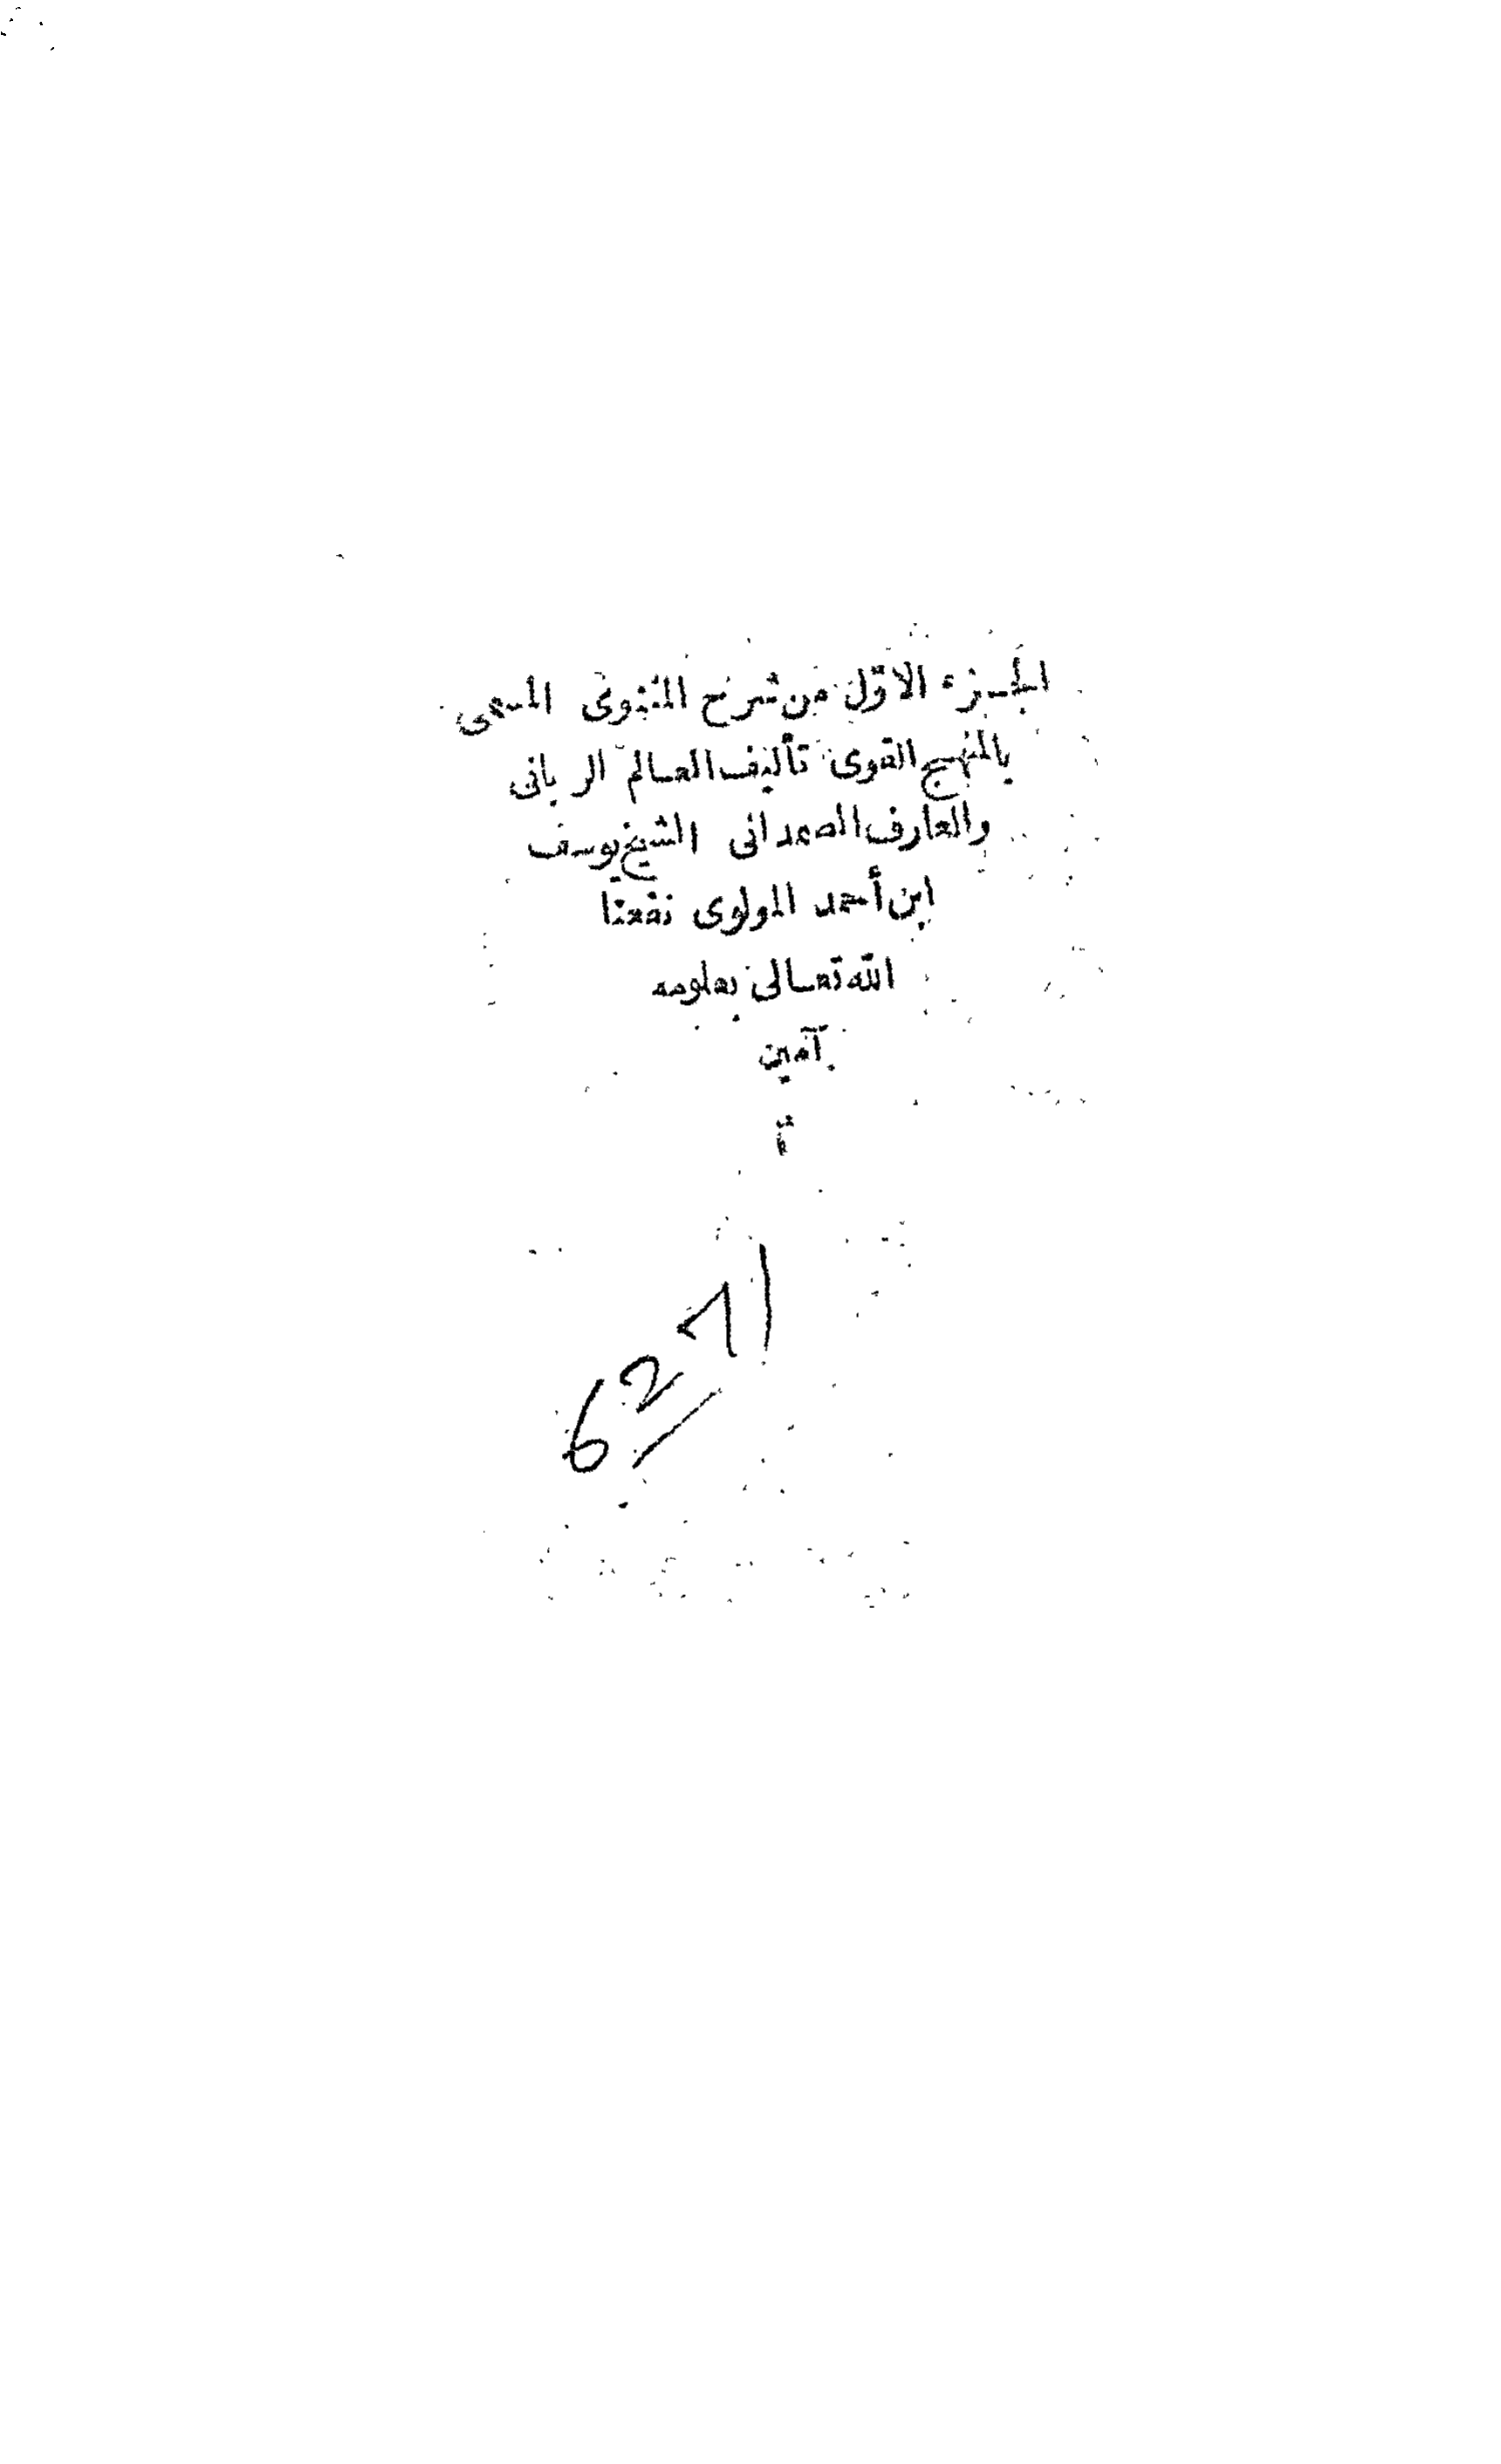 الجزء الاوّل من شرح المثنوى المسمى
بالمنهج القوى تأليف العالم الربانى
والعارف الصمدانى الشيخ يوسف
ابن أحمد المولوى نفعنا
الله تعالى بعلومه
آمين